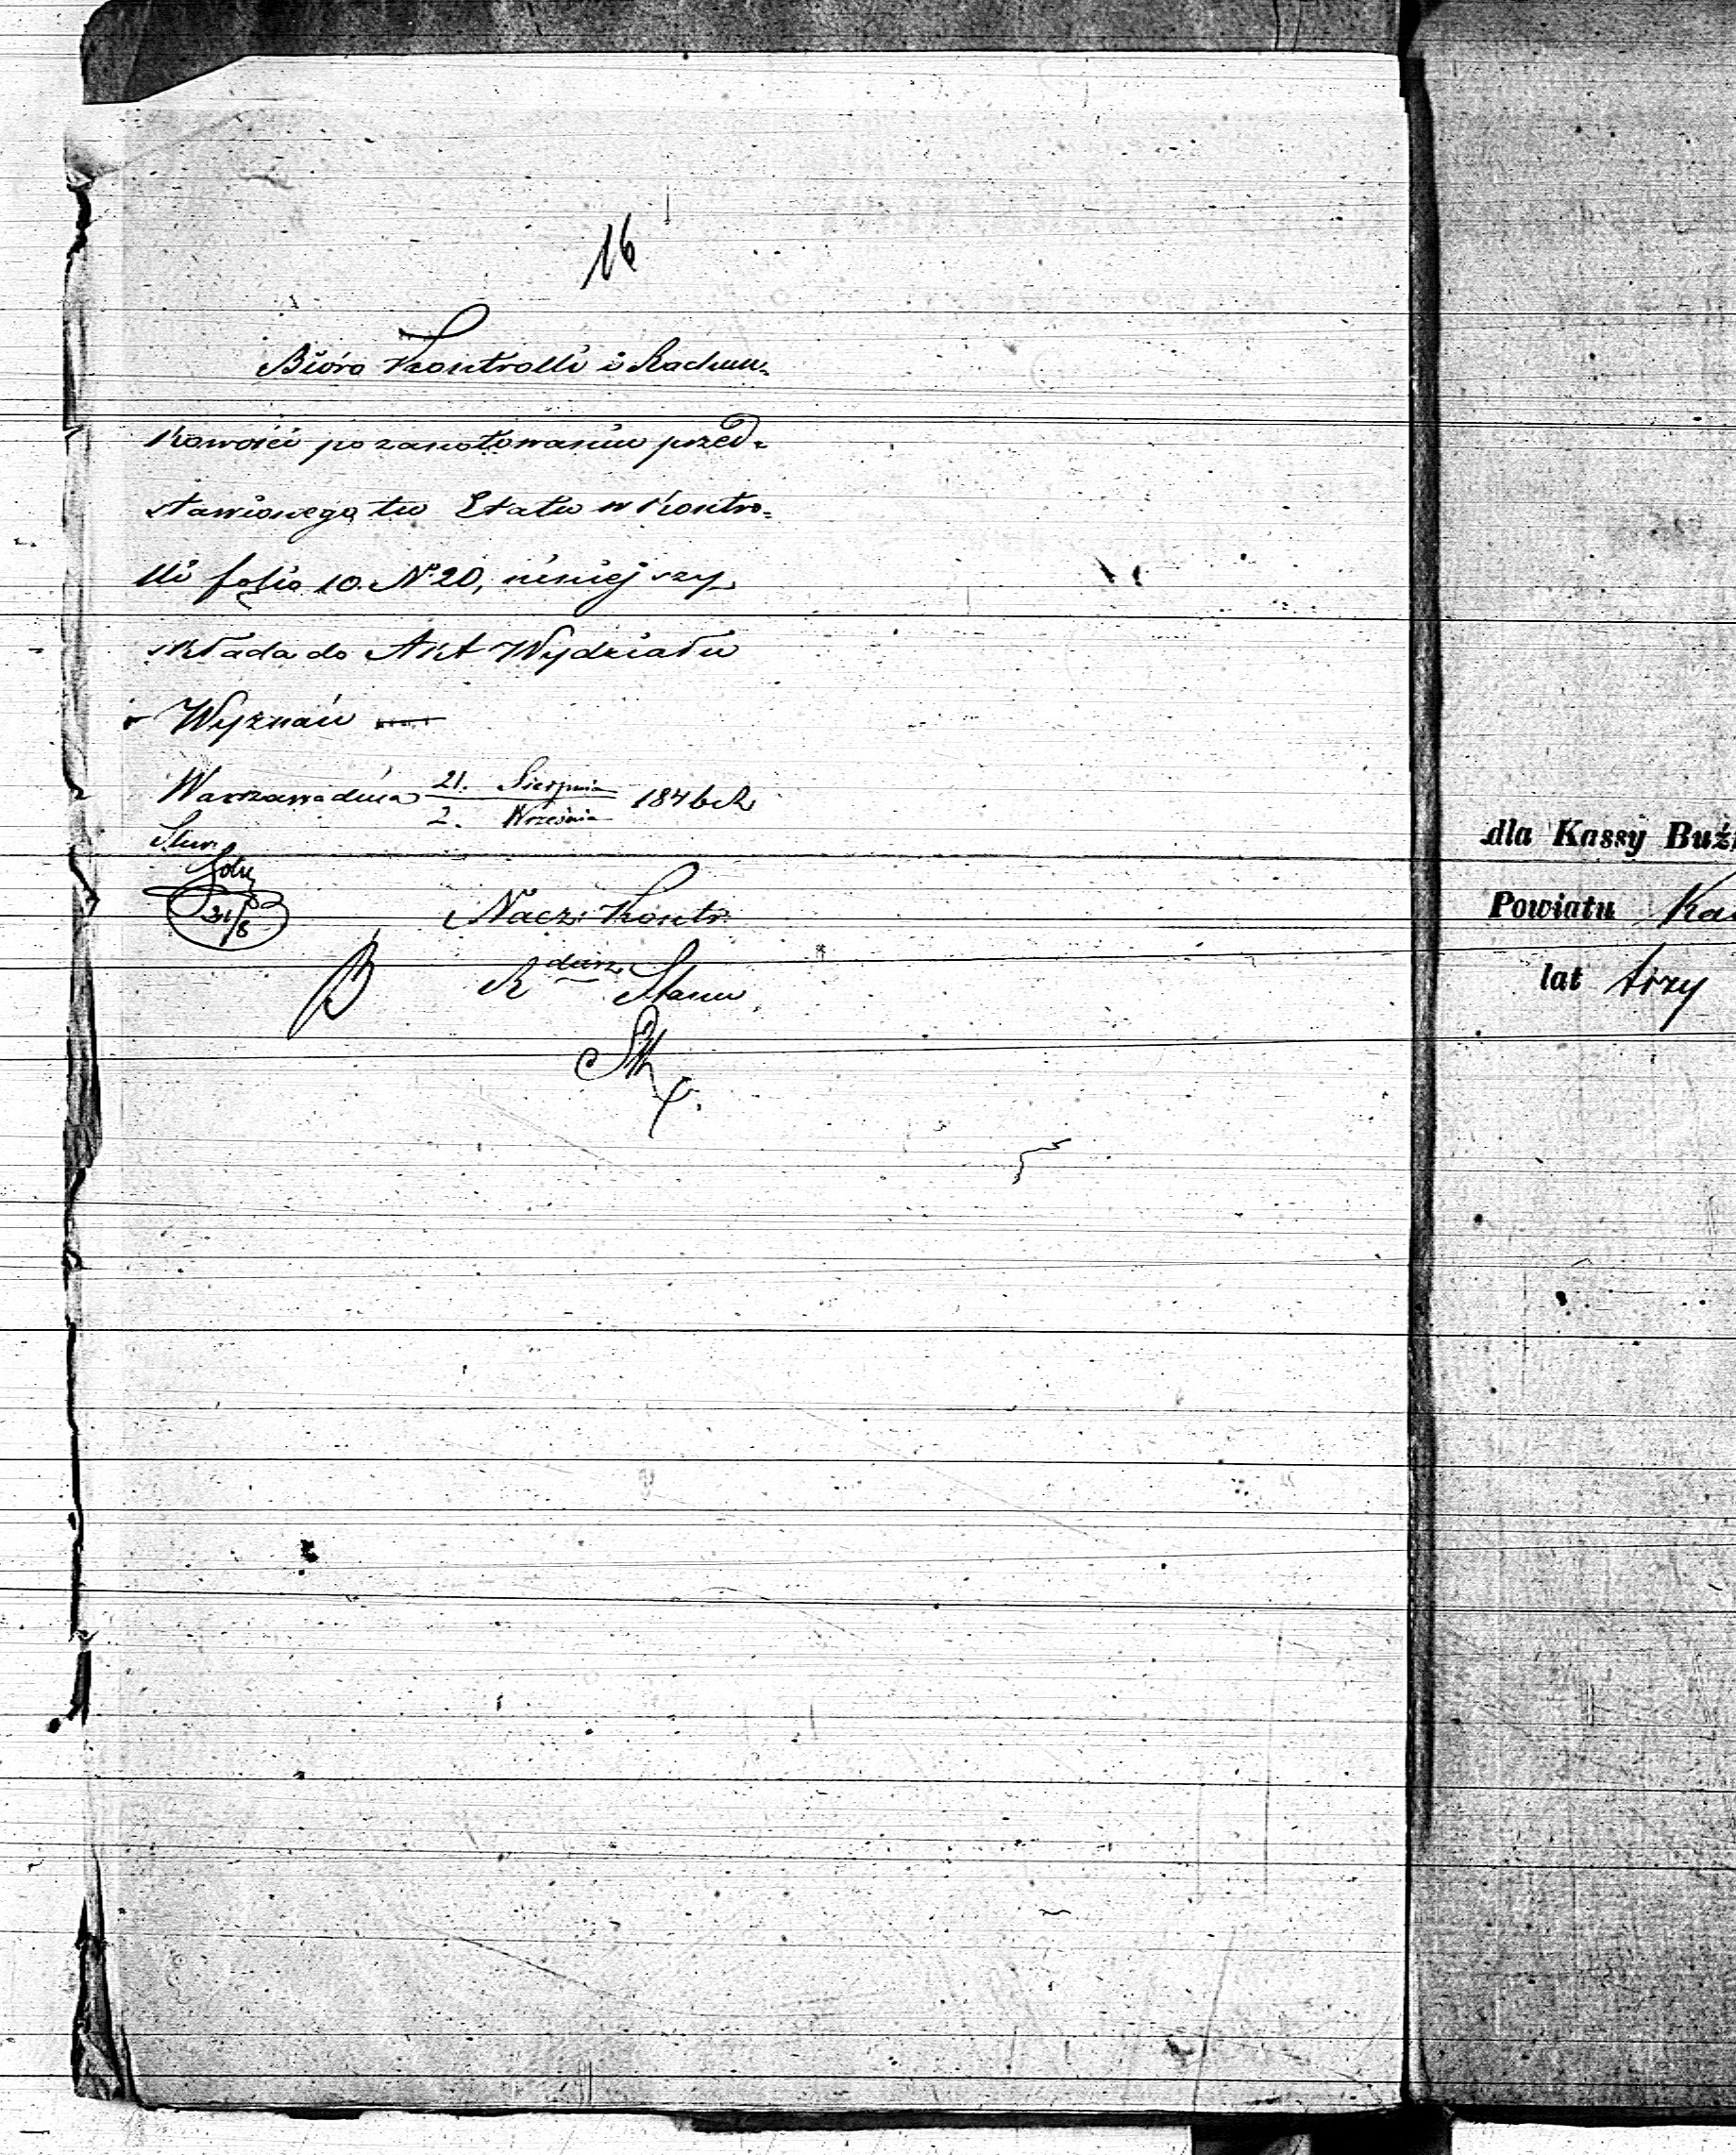 16
Bióro Kontrolli i Rachun-
kowości po zanotowaniu przed-
stawionego tu Etatu w Kontro-
lli folio 10. Nº 20, niniejszy
składa do Akt Wydziału
Wyznań
Warszawa dnia 21. Sierpnia / 2. Września 1846 R
21/8
Nacz: Kontr:
R dzca Stanu
dla Kassy Buź
Powiatu Ka
lat trzy